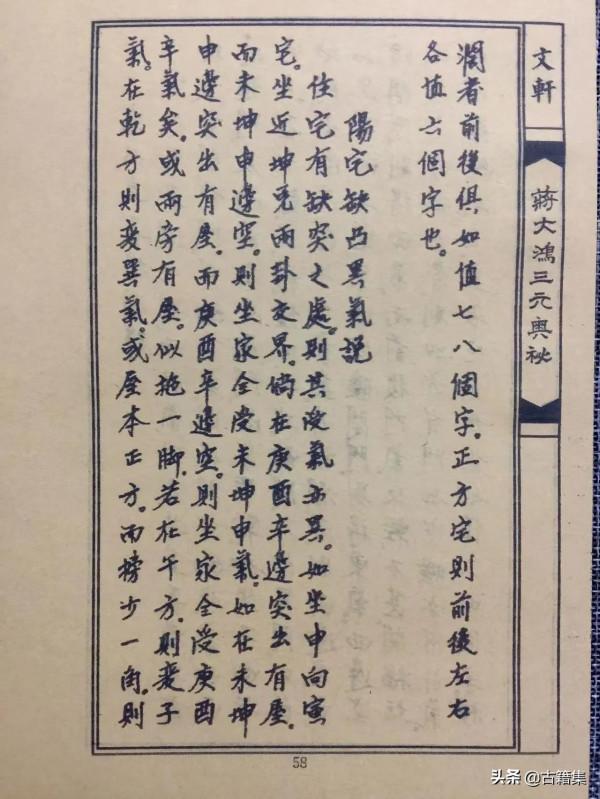 文軒
蔣大鴻三元奧秘
濶者前後俱如值七八個字。正方宅則前後左右
各值六個字也。
陽宅缺凸異氣説
住宅有缺突之處。則其受氣亦異。如坐申向寅
宅。坐近坤兌兩卦交界。倘在庚酉辛邊突出有屋。
而未坤申邊空。則坐家全受未坤申氣。如在未坤
申邊突出有屋。而庚酉辛邊空。則坐家全受庚酉
辛氣矣。或兩旁有屋。似拖一脚。若在午方。則変子
氣。在乾方則変巽氣。或屋本正方。而榜少一角。則
58
头条 @古籍集